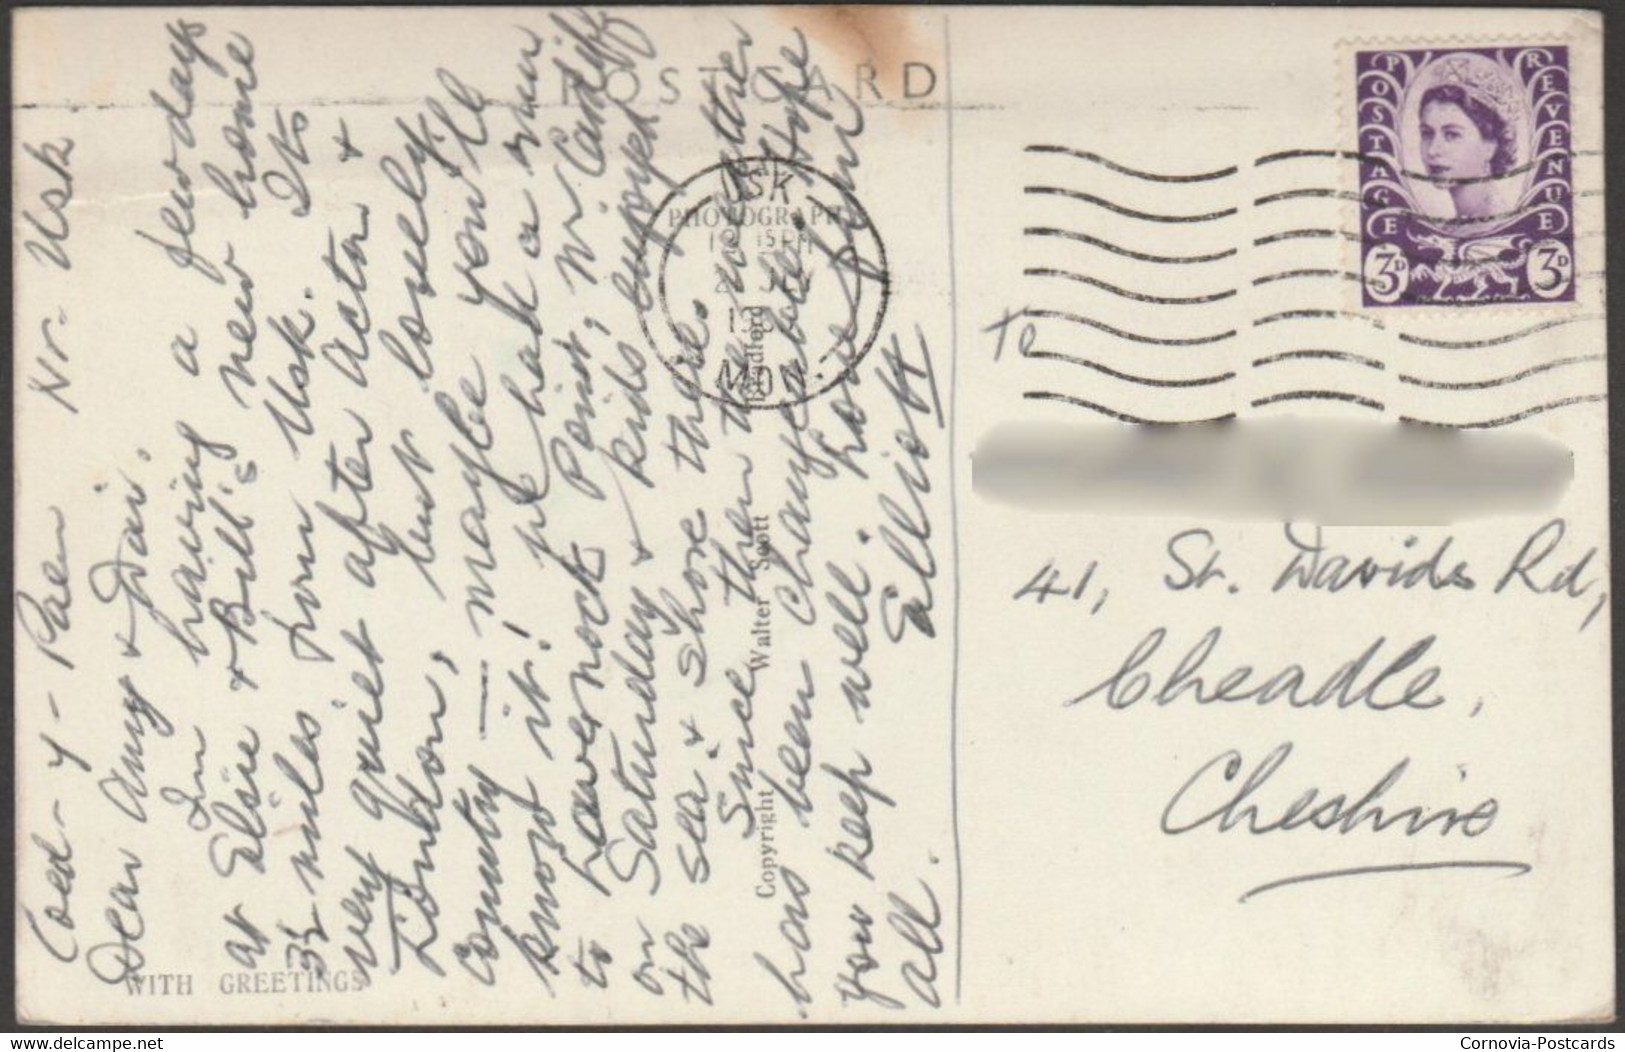 Coed-y-Paen Nr. Usk.
Dear Amy & Dai.
I'm having a few days
at Elsie & Bill's new home
3½ miles from Usk. Its
very quiet after Acton &
London, but lovely
country — maybe you'll
know it! We had a run
to Lavernock Point, Nr Cardiff
on Saturday & kids enjoyed
the sea & shore there.
Since then the weather
has been changeable. Hope
you keep well. Love from
all. Elliott
WITH GREETINGS
POST CARD
Copyright Walter Scott Bradford
PHOTOGRAPH
USK
MON.
12 15 PM
POSTAGE REVENUE
3D 3D
To
41, St. Davids Rd,
Cheadle,
Cheshire
Cornovia-Postcards
delcampe.net